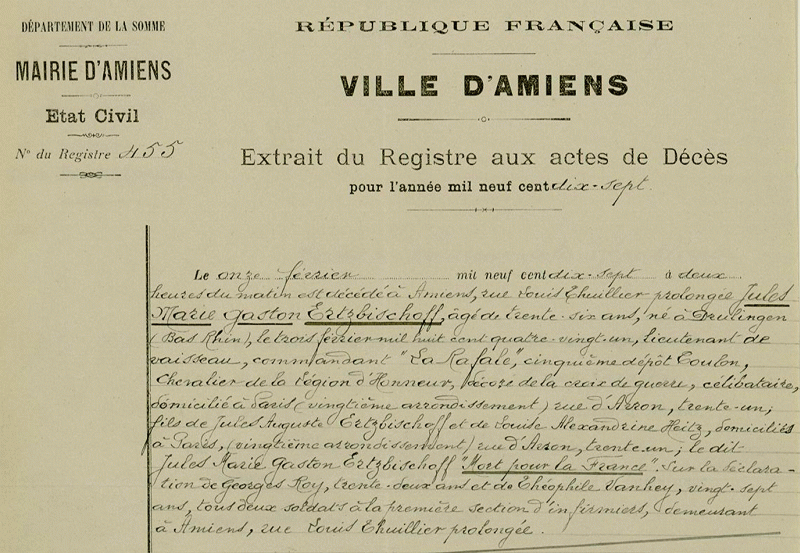 DÉPARTEMENT DE LA SOMME
MAIRIE D'AMIENS
Etat Civil
N° du Registre 455
RÉPUBLIQUE FRANÇAISE
VILLE D'AMIENS
Extrait du Registre aux actes de Décès
pour l'année mil neuf cent dix-sept.
Le onze février mil neuf cent dix-sept à deux
heures du matin est décédé à Amiens, rue Louis Thuillier prolongée Jules
Marie Gaston Ertzbischoff, âgé de trente-six ans, né à Drulingen
(Bas Rhin), le trois février mil huit cent quatre-vingt-un, lieutenant de
vaisseau, commandant "La Rafale", cinquième dépôt Toulon,
Chevalier de la Légion d'Honneur, décoré de la croix de guerre, célibataire,
domicilié à Paris (vingtième arrondissement) rue d'Avron, trente-un;
fils de Jules Auguste Ertzbischoff et de Louise Alexandrine Heitz, domiciliés
à Paris, (vingtième arrondissement) rue d'Avron, trente un; le dit
Jules Marie Gaston Ertzbischoff "Mort pour la France". Sur la déclara-
tion de Georges Roy, trente-deux ans et de Théophile Vanhey, vingt-sept
ans, tous deux soldats à la première section d'infirmiers, demeurant
à Amiens, rue Louis Thuillier prolongée.